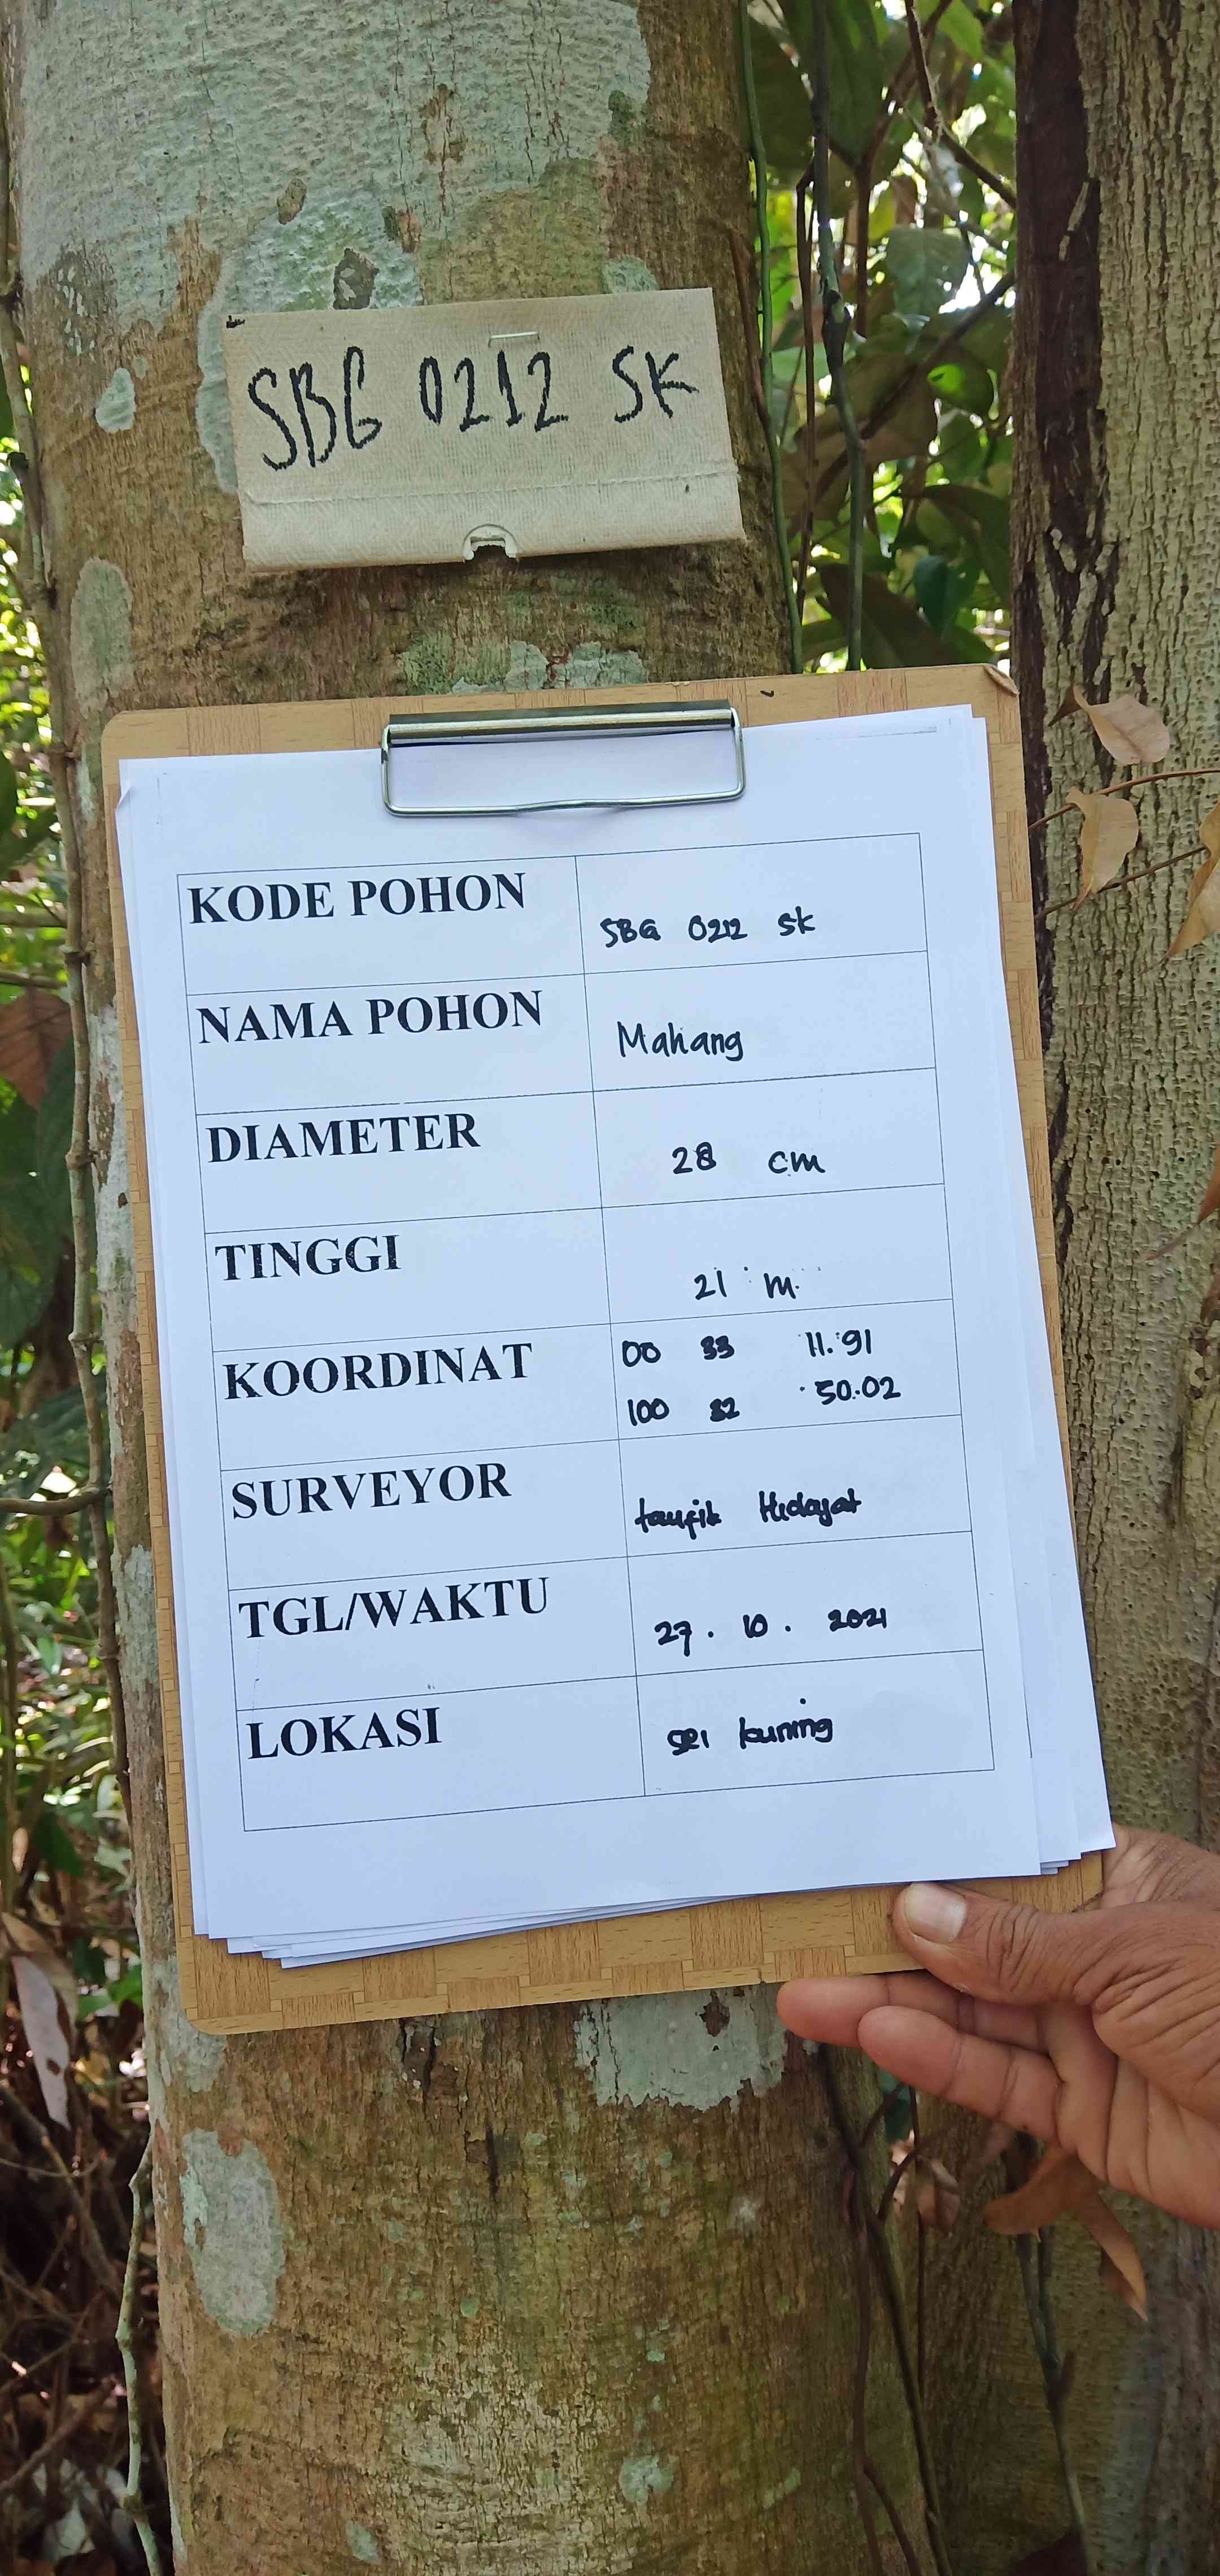 SBG 0212 SK
KODE POHON SBG 0212 SK
NAMA POHON Mahang
DIAMETER 28 cm
TINGGI 21 m
KOORDINAT 00 33 11.91
100 32 50.02
SURVEYOR taufik Hidayat
TGL/WAKTU 27. 10. 2021
LOKASI sei kuning